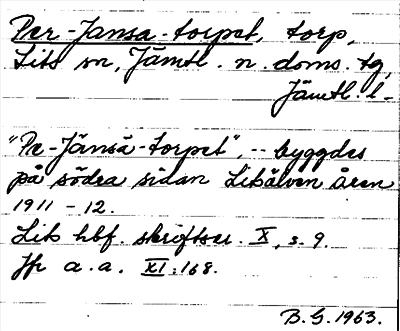 Per-Jansa-torpet, torp,
Lits sn, Jämtl. n. doms. tg,
Jämtl. l.
"Pe-Jänsä-torpet", -- byggdes
på södra sidan Litsälven åren
1911 - 12.
Lits hbf. skrifter. X, s. 9.
Jfr a.a. XI:168.
B.G. 1963.